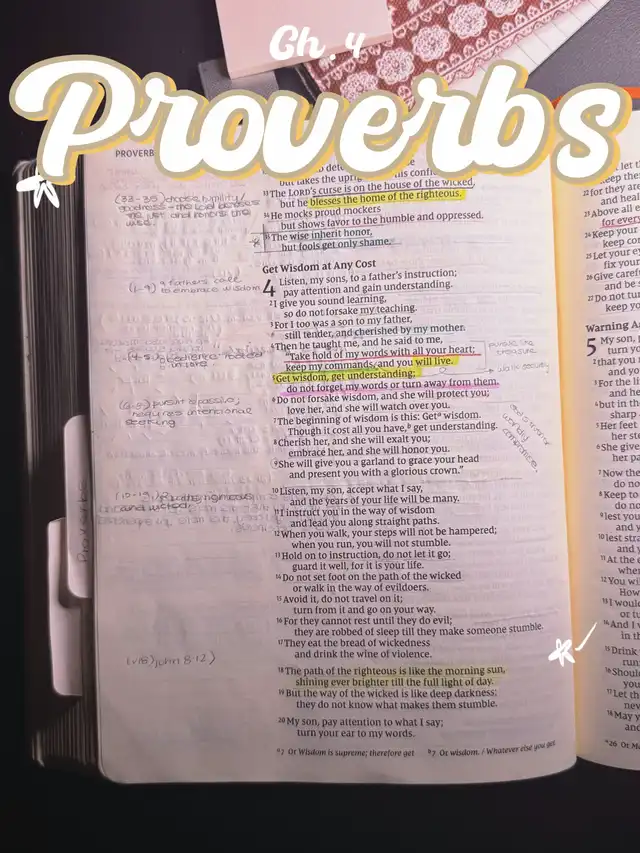 Ch. 4
Proverbs
PROVERB
but takes the uprig
13 The LORD's curse is on the house of the wicked,
but he blesses the home of the righteous.
14 He mocks proud mockers
but shows favor to the humble and oppressed.
15 The wise inherit honor,
but fools get only shame.
Get Wisdom at Any Cost
4 Listen, my sons, to a father's instruction;
pay attention and gain understanding.
2 I give you sound learning,
so do not forsake my teaching.
3 For I too was a son to my father,
still tender, and cherished by my mother.
4 Then he taught me, and he said to me,
"Take hold of my words with all your heart;
keep my commands, and you will live.
5 Get wisdom, get understanding;
do not forget my words or turn away from them.
6 Do not forsake wisdom, and she will protect you;
love her, and she will watch over you.
7 The beginning of wisdom is this: Get a wisdom.
Though it cost all you have, b get understanding.
8 Cherish her, and she will exalt you;
embrace her, and she will honor you.
9 She will give you a garland to grace your head
and present you with a glorious crown."
10 Listen, my son, accept what I say,
and the years of your life will be many.
11 I instruct you in the way of wisdom
and lead you along straight paths.
12 When you walk, your steps will not be hampered;
when you run, you will not stumble.
13 Hold on to instruction, do not let it go;
guard it well, for it is your life.
14 Do not set foot on the path of the wicked
or walk in the way of evildoers.
15 Avoid it, do not travel on it;
turn from it and go on your way.
16 For they cannot rest until they do evil;
they are robbed of sleep till they make someone stumble.
17 They eat the bread of wickedness
and drink the wine of violence.
18 The path of the righteous is like the morning sun,
shining ever brighter till the full light of day.
19 But the way of the wicked is like deep darkness;
they do not know what makes them stumble.
20 My son, pay attention to what I say;
turn your ear to my words.
a 7 Or Wisdom is supreme; therefore get b 7 Or wisdom. / Whatever else you get
(33-35) choose humility/
(1-9) a father's call
to embrace wisdom
(6-8) pursuit
requires intentional
seeking
(v18) John 8:12)
treasure
Proverbs
22 for they are
and heal
23 Above all e
for every
24 Keep your
keep co
25 Let your ey
fix your
26 Give caref
and be s
27 Do not tur
keep yo
Warning A
5 My son, p
turn you
2 that you m
and you
3 For the li
and he
4 but in th
5 Her feet
her
6 She give
7 Now the
do no
8 Keep to
do no
9 lest you
and y
10 lest stra
11 At the e
when
12 You wi
How
13 I would
14 And I
in th
15 Drink
16 Shoul
your
17 Let th
nev
18 May y
and
a 26 Or Ma